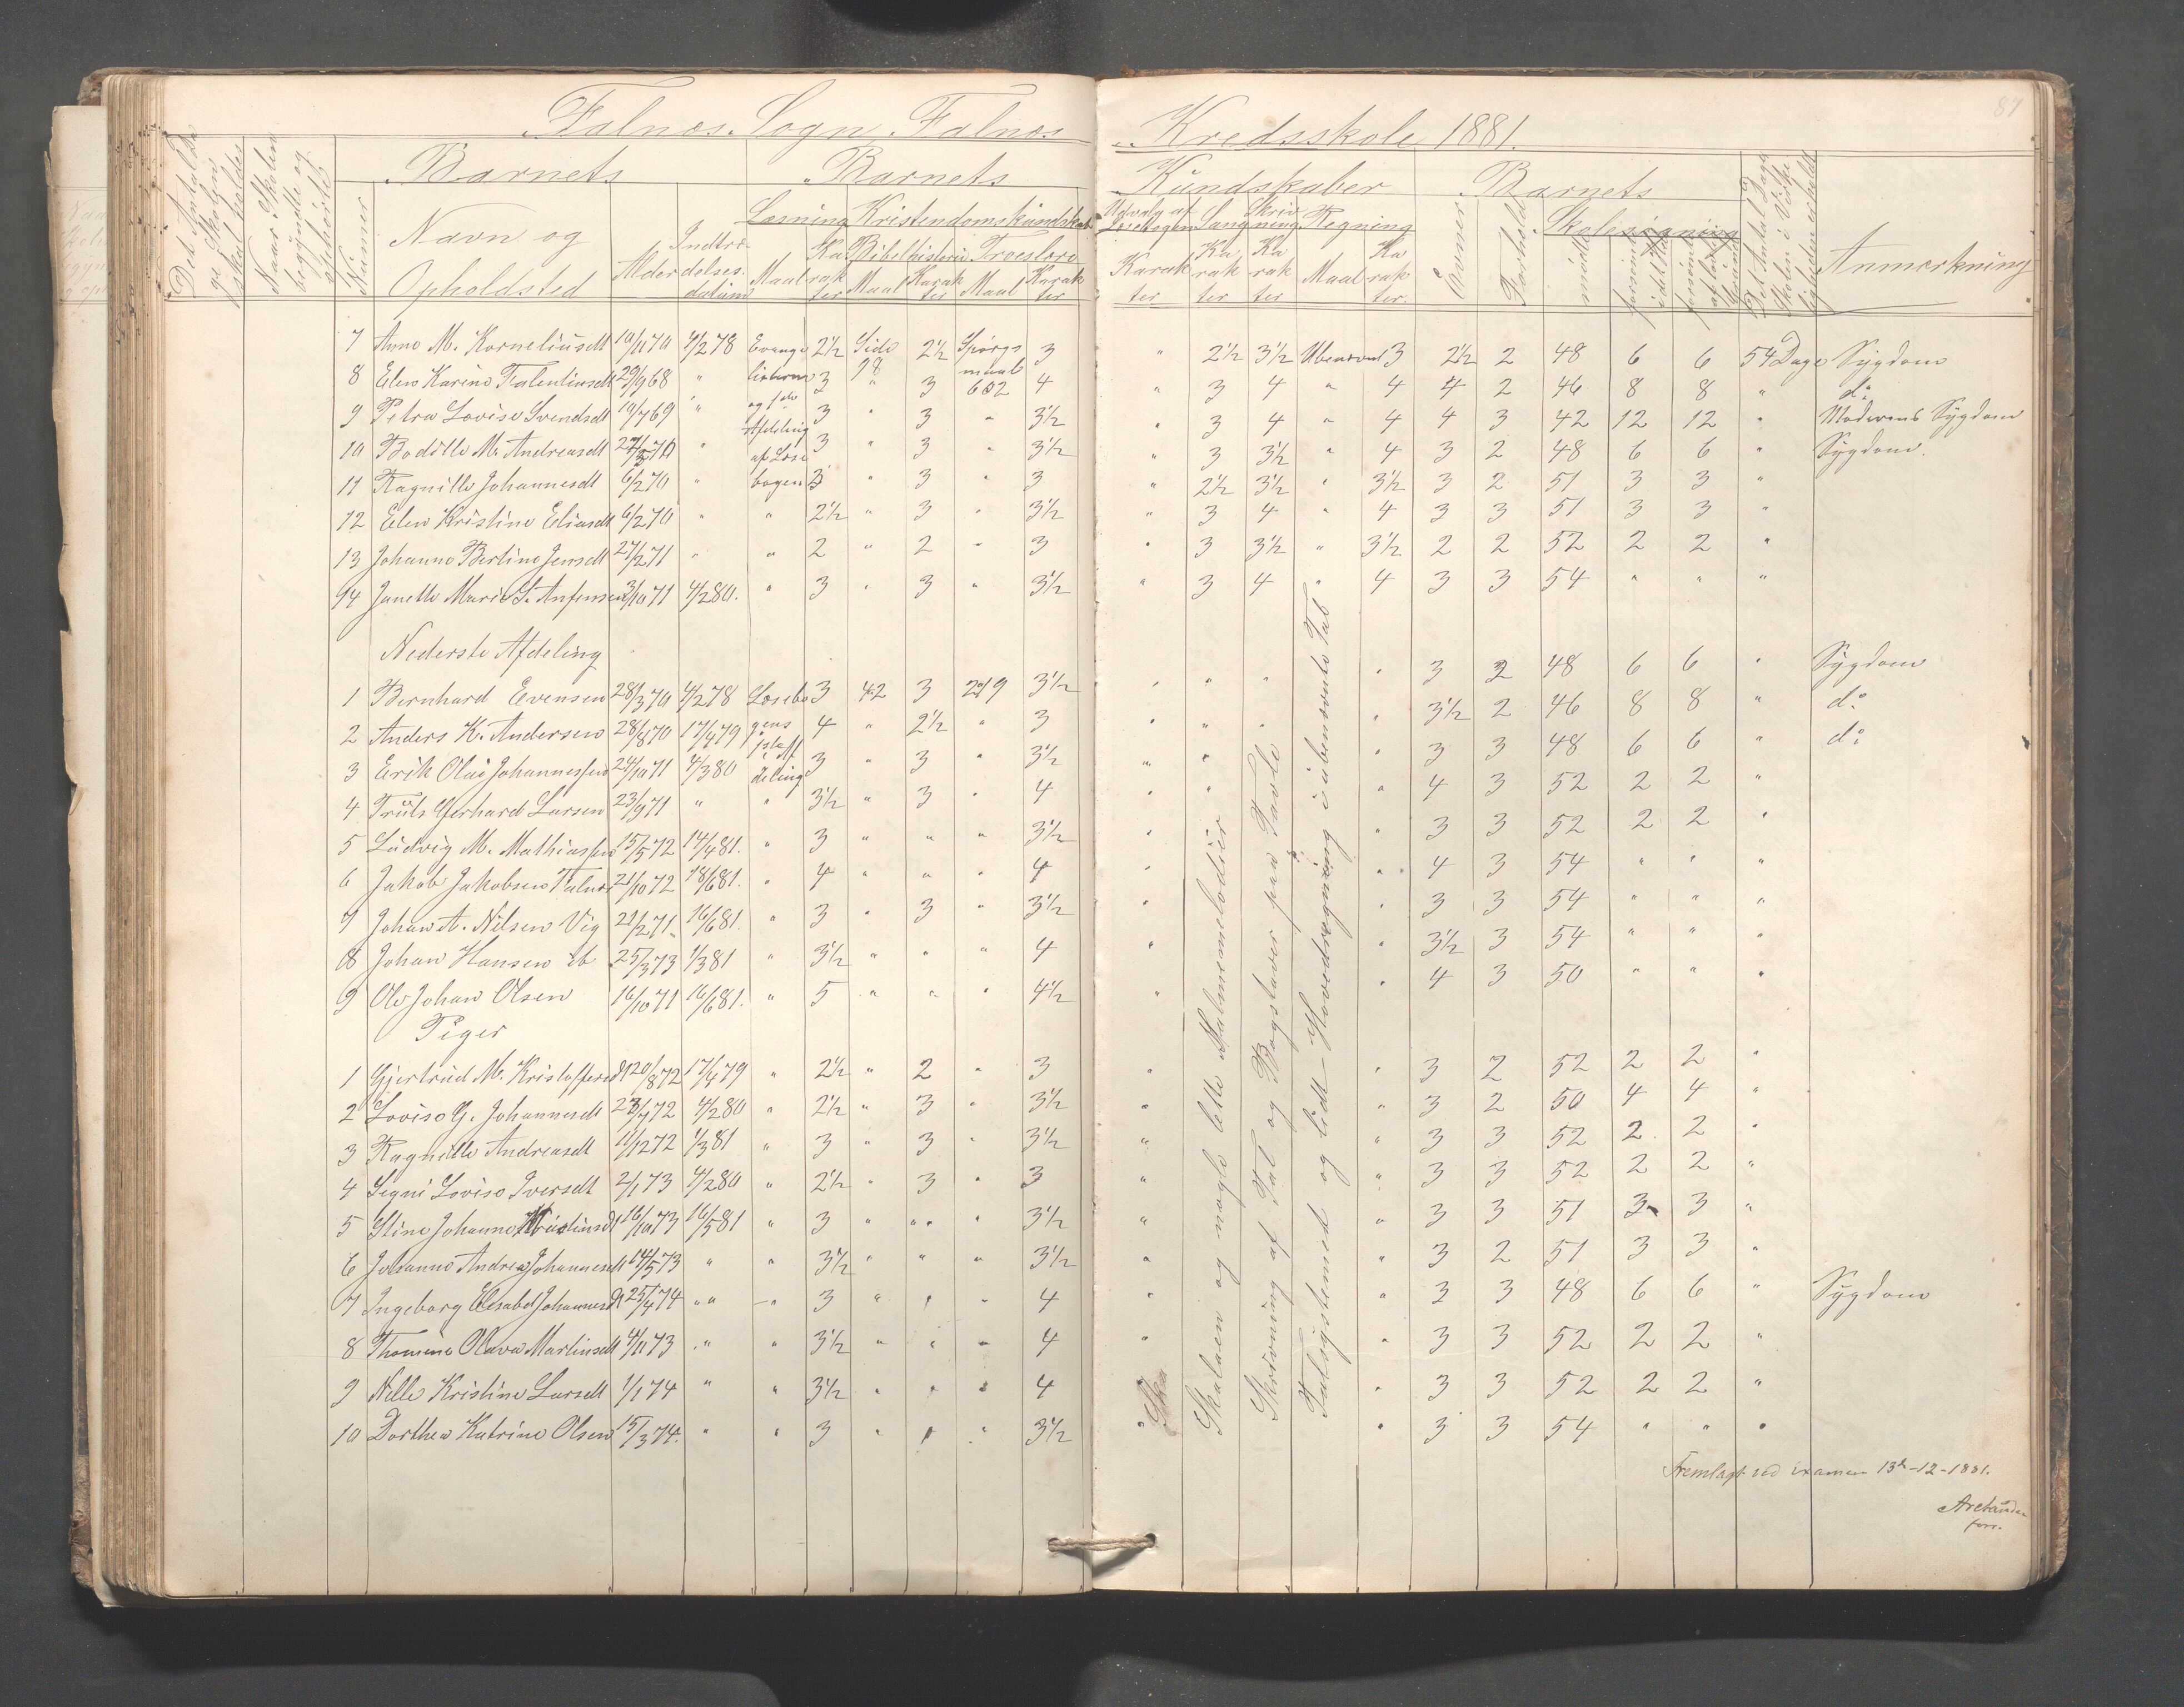 87
Falnæs Sogn Falnæs Kredsskole 1881.
Barnets Barnets Kundskaber Barnets
Det Antal Da
ge Skolen
skal holdes
Naar Skolen
begyndte og
ophørte
Nummer
Navn og
Opholdsted
Alder
Indtræ-
delses-
datum
Læsning Kristendomskundskab
Maal Ka rak ter
Bibelhistorie Troeslære
Maal Karak ter Maal Karak ter
Udvalg af Læsebogen Sang Skriv ning Regning
Karak ter Ka rak ter Ka rak ter Maal Ka rak ter.
Evner Forhold
Skolesøgning
mødte forsømte i det Hele forsømte af lovlig Grund
Det Antal Dage Skolen i Virke lighden er holdt
Anmærkning
7 Anne M. Korneliusdt 10/11 70 4/2 78 Evange 2½ Side 98 2½ Spørgs maal 3 " 2½ 3½ Ubenævnt 3 2½ 2 48 6 6 54 Dage Sygdom
8 Elen Karine Falentinsdt 29/9 68 " listerne 3 " 3 602 4 " 3 4 " 4 4 2 46 8 8 " do
9 Petra Lovise Svendsdt 10/7 69 " og 3 " 3 " 3½ " 3 4 " 4 4 3 42 12 12 " Moderens Sygdom
10 Bodille M. Andreasdt 27/3 70 " Afdeling af Læse 3 " 3 " 3½ " 3 3½ " 4 3 2 48 6 6 " Sygdom.
11 Ragnille Johannesdt 6/2 70 " bogen 3 " 3 " 3 " 2½ 3½ " 3½ 3 2 51 3 3 "
12 Elen Kristine Eliasdt 6/2 70 " " 2½ " 3 " 3½ " 3 4 " 4 3 3 51 3 3 "
13 Johanne Bertine Jensdt 27/2 71 " " 2 " 2 " 3 " 3 3½ " 3½ 2 2 52 2 2 "
14 Janette Marie S. Anfensen 3/10 71 4/2 80. " 3 " 3 " 3½ " 3 4 " 4 3 3 54 " " "
Nederste Afdeling
1 Bernhard Evensen 28/3 70 4/2 78 Læsebo 3 42 3 219 3½ " " " " 3 2 48 6 6 " Sygdom
2 Anders K. Andersen 28/8 70 17/4 79 gens 4 " 2½ " 3 " " " " 3½ 2 46 8 8 " do
3 Erik Olai Johannessen 24/10 71 4/3 80 1ste Af deling 3 " 3 " 3½ " " " 3 3 48 6 6 " do
4 Truls Gerhard Larsen 23/9 71 " " 3½ " 3 " 4 " " " 4 3 52 2 2 "
5 Ludvig M. Mathiassen 15/5 72 14/4 81. " 3 " " " 3½ " " 3 3 52 2 2 "
6 Jakob Jakobsen Falnæs 21/10 72 18/6 81. " 4 " " " 4 " " 4 3 54 " " "
7 Johan A. Nilsen Vig 21/2 71. 16/6 81. " 3 " 3 " 3½ " " 3 3 54 " " "
8 Johan Hansen ib 25/3 73 1/3 81 " 3½ " " " 4 " " 3½ 3 54 " " "
9 Ole Johan Olsen 16/10 71 16/6 81. " 5 " " " 4½ " " 4 3 50 " " "
Piger
1 Gjertrud M. Kristoffersdt 20/8 72 17/4 79 " 2½ " 2 " 3 " " 3 2 52 2 2 "
2 Lovise G. Johannesdt 23/4 72 4/2 80 " 2½ " 3 " 3½ " " 3 2 50 4 4 "
3 Ragnille Andreasdt 11/12 72 1/3 81 " 3 " 3 " 3½ " " 3 3 52 2 2 "
4 Signi Lovise Iversdt 2/1 73 4/2 80 " 2½ " 3 " 3 " " 3 3 52 2 2 "
5 Stine Johanne 16/10 73 16/5 81 " 3 " " " 3½ " " 3 3 51 3 3 "
6 Johanne Andrea Johannesdt 14/5 73 " " 3½ " " " 3½ " " 3 2 51 3 3 "
7 Ingeborg Elisabet Johannesdt 25/4 74 " " 3 " " " 4 " " 3 3 48 6 6 " Sygdom
8 Thomine Olava Martinsdt 4/11 73 " " 3½ " " " 4 " " 3 3 52 2 2 "
9 Nelle Kristine Larsdt 1/1 74 " " 3½ " " " 4 " 3 3 52 2 2 "
10 Dorthea Katrine Olsen 15/3 74. " " 3 " " " 3½ " " 3 3 54 " " "
Ska
Skalaen og nogle lette Salmemelodier
Skrivning af Tal og Bogstaver paa Tavle
Talsystemet og lidt Hovedregning i ubenævnte Tal
Fremlagt ved Examen 13de-12-1881.
Arctander